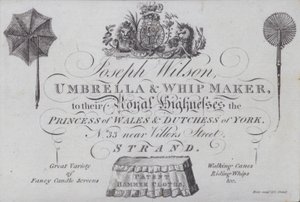 Joseph Wilson,
UMBRELLA & WHIP MAKER,
to their Royal Highnesses the
PRINCESS OF WALES & DUTCHESS OF YORK,
No. 33 near Villers Street,
STRAND.
Great Variety
of
Fancy Candle Screens
PATENT
HAMMER CLOTHS.
Walking Canes
Riding Whips
&c.